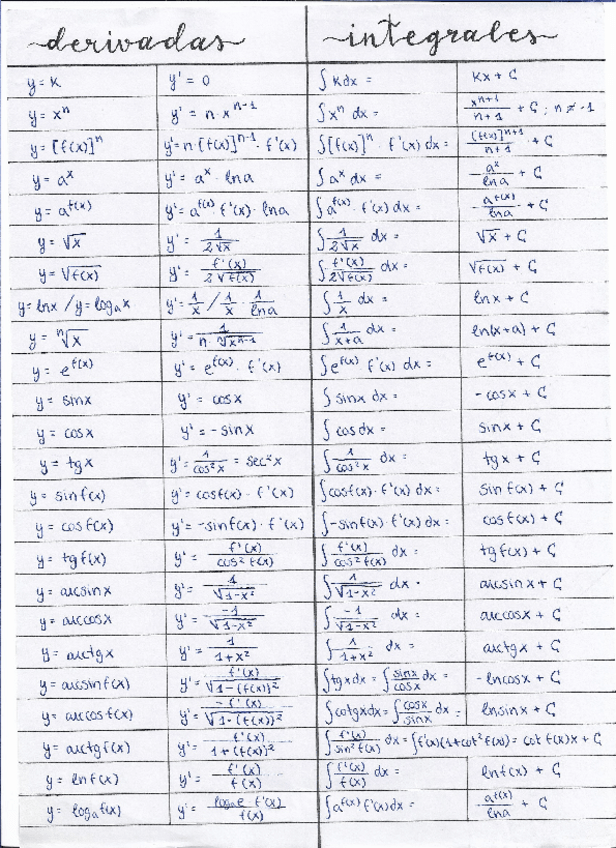 derivadas integrales
y = K y' = 0 ∫ K dx = Kx + C
y = xⁿ y' = n · xⁿ⁻¹ ∫ xⁿ dx = xⁿ⁺¹/n+1 + C ; n ≠ -1
y = [f(x)]ⁿ y' = n · [f(x)]ⁿ⁻¹ · f'(x) ∫ [f(x)]ⁿ · f'(x) dx = [f(x)]ⁿ⁺¹/n+1 + C
y = aˣ y' = aˣ · ln a ∫ aˣ dx = aˣ/ln a + C
y = a^f(x) y' = a^f(x) · f'(x) · ln a ∫ a^f(x) · f'(x) dx = a^f(x)/ln a + C
y = √x y' = 1/2√x ∫ 1/2√x dx = √x + C
y = √f(x) y' = f'(x)/2√f(x) ∫ f'(x)/2√f(x) dx = √f(x) + C
y = ln x / y = logₐ x y' = 1/x / 1/x · 1/ln a ∫ 1/x dx = ln x + C
y = ⁿ√x y' = 1/n · ⁿ√xⁿ⁻¹ ∫ 1/x+a dx = ln(x+a) + C
y = e^f(x) y' = e^f(x) · f'(x) ∫ e^f(x) f'(x) dx = e^f(x) + C
y = sin x y' = cos x ∫ sin x dx = - cos x + C
y = cos x y' = - sin x ∫ cos dx = sin x + C
y = tg x y' = 1/cos² x = sec² x ∫ 1/cos² x dx = tg x + C
y = sin f(x) y' = cos f(x) · f'(x) ∫ cos f(x) · f'(x) dx = sin f(x) + C
y = cos f(x) y' = - sin f(x) · f'(x) ∫ - sin f(x) · f'(x) dx = cos f(x) + C
y = tg f(x) y' = f'(x)/cos² f(x) ∫ f'(x)/cos² f(x) dx = tg f(x) + C
y = arcsin x y' = 1/√1-x² ∫ 1/√1-x² dx = arcsin x + C
y = arccos x y' = -1/√1-x² ∫ -1/√1-x² dx = arccos x + C
y = arctg x y' = 1/1+x² ∫ 1/1+x² dx = arctg x + C
y = arcsin f(x) y' = f'(x)/√1-(f(x))² ∫ tg x dx = ∫ sin x/cos x dx = - ln cos x + C
y = arccos f(x) y' = -f'(x)/√1-(f(x))² ∫ cotg x dx = ∫ cos x/sin x dx = ln sin x + C
y = arctg f(x) y' = f'(x)/1+(f(x))² ∫ f'(x)/sin² f(x) dx = ∫ f'(x)(1+cot² f(x)) = cot f(x) x + C
y = ln f(x) y' = f'(x)/f(x) ∫ f'(x)/f(x) dx = ln f(x) + C
y = logₐ f(x) y' = logₐ e · f'(x)/f(x) ∫ a^f(x) f'(x) dx = a^f(x)/ln a + C